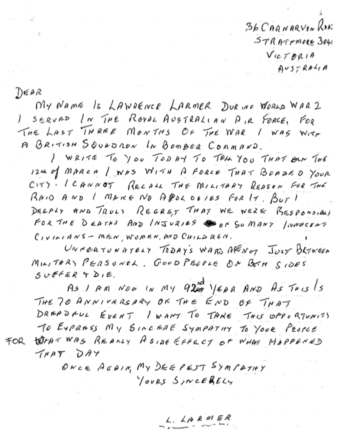 36 CARNARVON RD.
STRATHMORE 3041
VICTORIA
AUSTRALIA
DEAR
MY NAME IS LAWRENCE LARMER DURING WORLD WAR 2
I SERVED IN THE ROYAL AUSTRALIAN AIR FORCE, FOR
THE LAST THREE MONTHS OF THE WAR I WAS WITH
A BRITISH SQUADRON IN BOMBER COMMAND.
I WRITE TO YOU TODAY TO TELL YOU THAT ON THE
12TH OF MARCH I WAS WITH A FORCE THAT BOMBED YOUR
CITY. I CANNOT RECALL THE MILITARY REASON FOR THE
RAID AND I MAKE NO APOLOGIES FOR IT. BUT I
DEEPLY AND TRULY REGRET THAT WE WERE RESPONSIBLE
FOR THE DEATHS AND INJURIES OF SO MANY INNOCENT
CIVILIANS - MEN, WOMEN, AND CHILDREN.
UNFORTUNATELY TODAY'S WARS ARE NOT JUST BETWEEN
MILITARY PERSONEL. GOOD PEOPLE ON BOTH SIDES
SUFFER & DIE.
AS I AM NOW IN MY 92nd YEAR AND AS THIS IS
THE 70 ANNIVERSARY OF THE END OF THAT
DREADFUL EVENT I WANT TO TAKE THIS OPPORTUNITY
TO EXPRESS MY SINCERE SYMPATHY TO YOUR PEOPLE
FOR WHAT WAS REALLY A SIDE EFFECT OF WHAT HAPPENED
THAT DAY
ONCE AGAIN, MY DEEPEST SYMPATHY
YOURS SINCERELY
L. LARMER